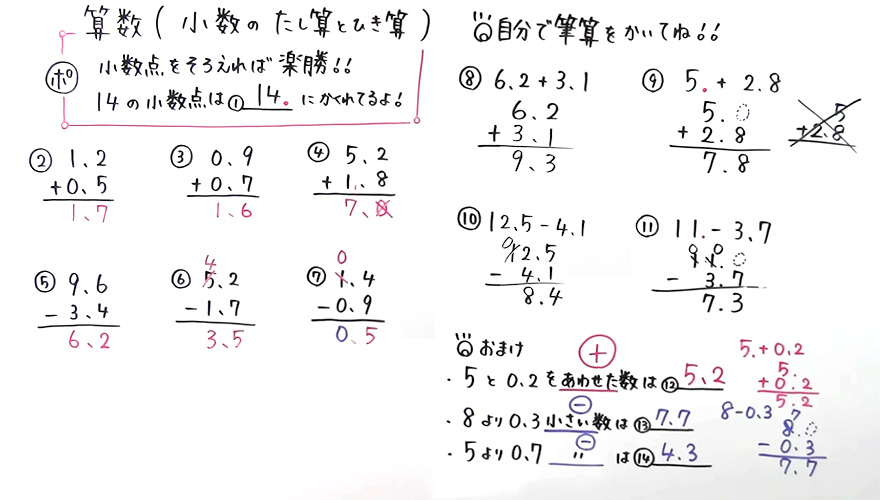 算数(小数のたし算とひき算)
ポ 小数点をそろえれば楽勝!!
14の小数点は① 14. にかくれてるよ!
② 1.2
+0.5
1.7
③ 0.9
+0.7
1.6
④ 5.2
+1.8
7.0
⑤ 9.6
-3.4
6.2
⑥ 4
5.2
-1.7
3.5
⑦ 0
1.4
-0.9
0.5
自分で筆算をかいてね!!
⑧ 6.2+3.1
6.2
+3.1
9.3
⑨ 5.+2.8
5.0
+2.8
7.8
5
+2.8
⑩ 12.5-4.1
0
12.5
-4.1
8.4
⑪ 11.-3.7
0 0
11.0
-3.7
7.3
おまけ
+
・5と0.2をあわせた数は⑫ 5.2
5.+0.2
5.
+0.2
5.2
−
・8より0.3小さい数は⑬ 7.7
8-0.3
7
8.0
-0.3
7.7
−
・5より0.7 〃 は⑭ 4.3